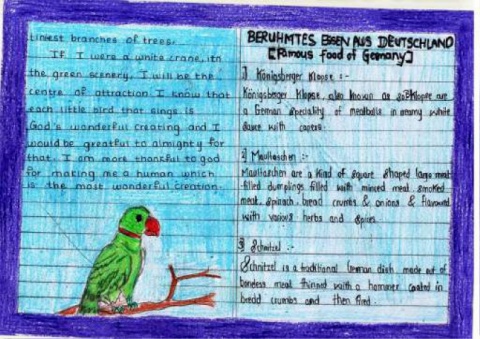 tiniest branches of trees.
If I were a white crane, in
the green scenery, I will be the
centre of attraction I know that
each little bird that sings is
God's wonderful creating and I
would be greatful to almighty for
that. I am more thankful to god
for making me a human which
is the most wonderful creation.
BERUHMTES ESSEN AUS DEUTSCHLAND
[Famous food of Germany]
1) Königsberger Klopse :-
Königsberger Klopse, also known as Klopse are
a German speciality of meatballs in creamy white
sauce with capers.
2) Maultaschen :-
Maultaschen are a kind of square shaped large meat
filled dumplings filled with minced meat, smoked
meat, spinach, bread crumbs & onions & flavoured
with various herbs and spices.
3) Schnitzel :-
Schnitzel is a traditional German dish made out of
boneless meat thinned with a hammer coated in
bread crumbs and then fried.